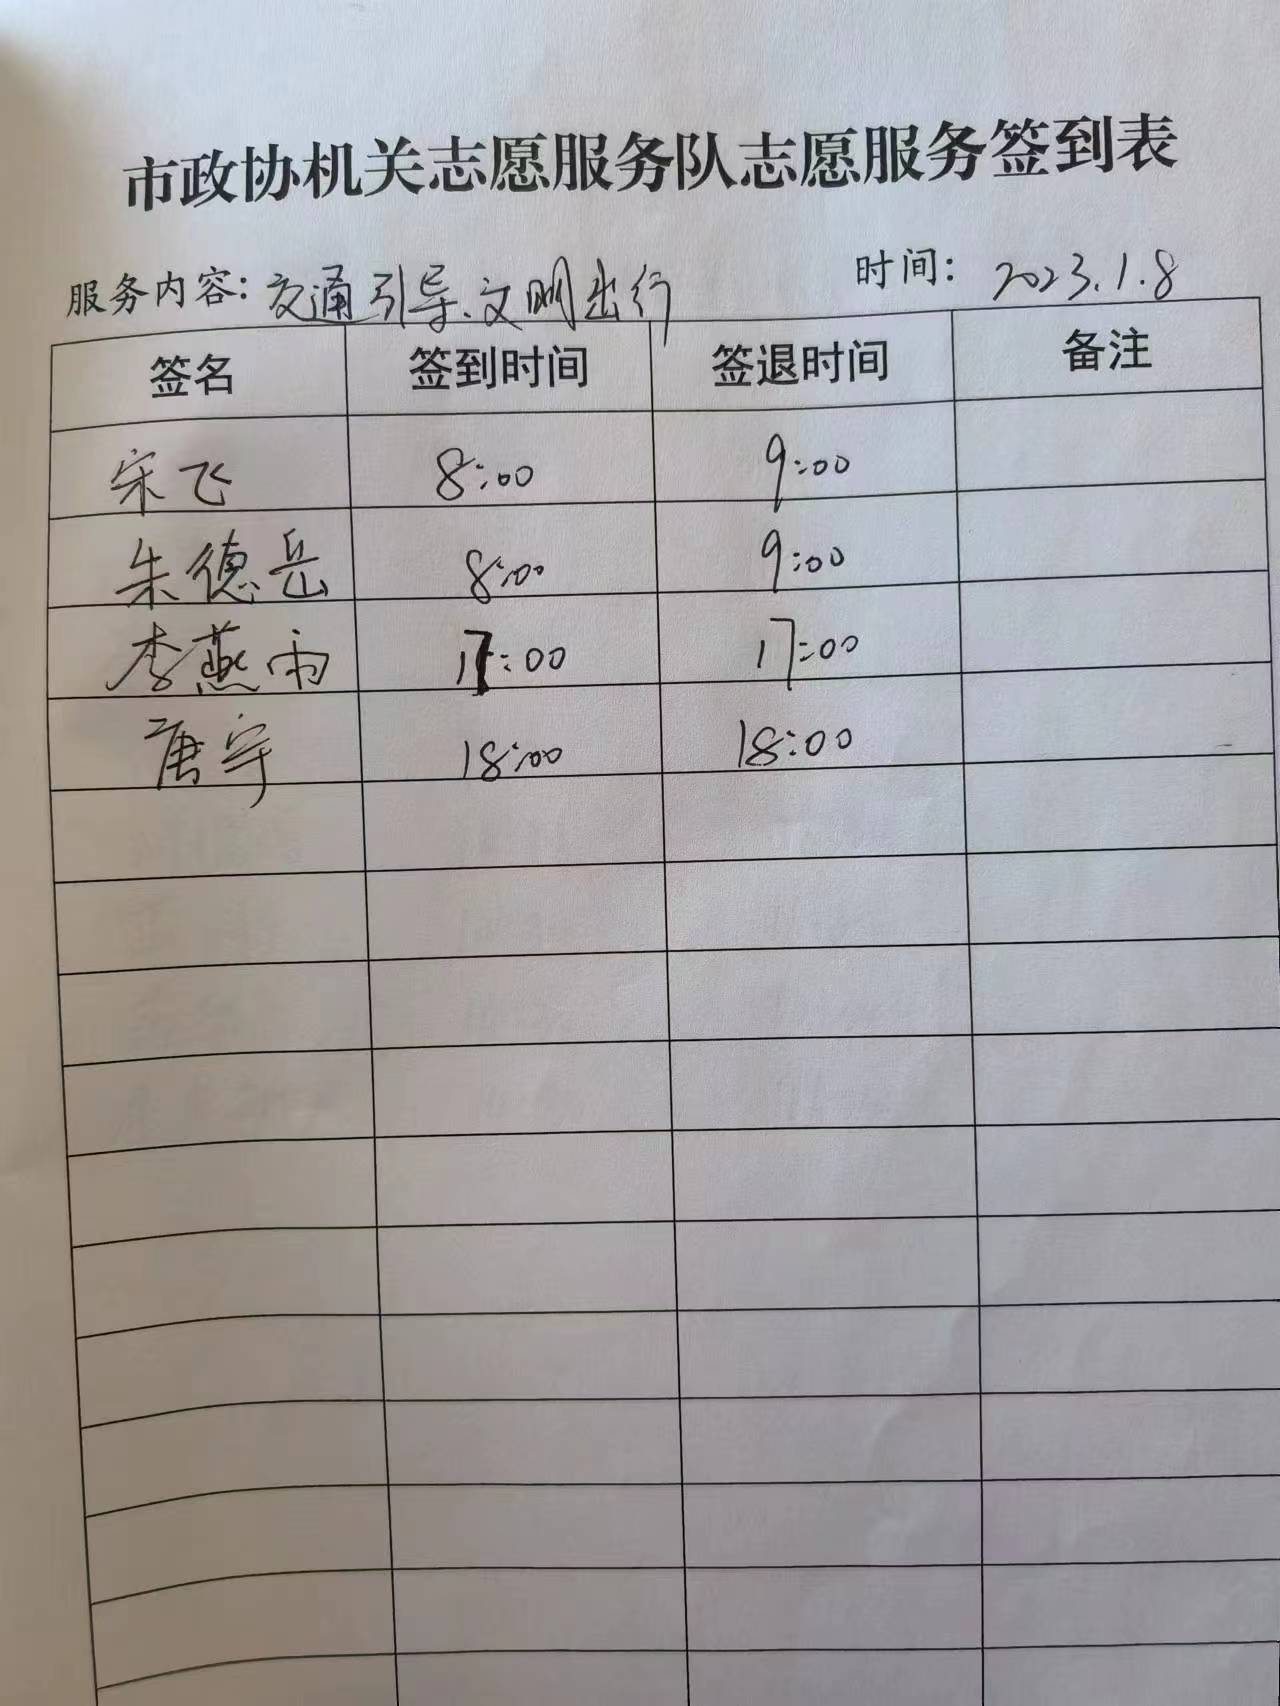 市政协机关志愿服务队志愿服务签到表
服务内容：交通引导、文明出行 时间：2023.1.8
签名 签到时间 签退时间 备注
宋飞 8:00 9:00
朱德岳 8:00 9:00
李燕雨 17:00 17:00
唐宇 18:00 18:00